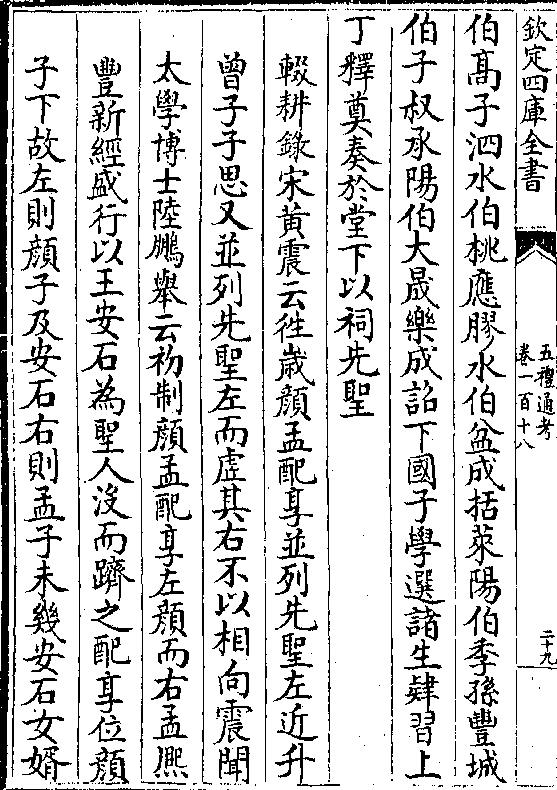 欽定四庫全書
五禮通考
卷一百十八
二十九
伯高子泗水伯桃應膠水伯盆成括萊陽伯季孫豐城
伯子叔承陽伯大晟樂成詔下國子學選諸生肄習上
丁釋奠奏於堂下以祠先聖
輟耕錄宋黃震云徃歲顔孟配享並列先聖左近升
曾子子思又並列先聖左而虛其右不以相向震聞
太學博士陸鵬舉云初制顔孟配享左顔而右孟熈
豐新經盛行以王安石為聖人沒而躋之配享位顔
子下故左則顔子及安石右則孟子未幾安石女婿